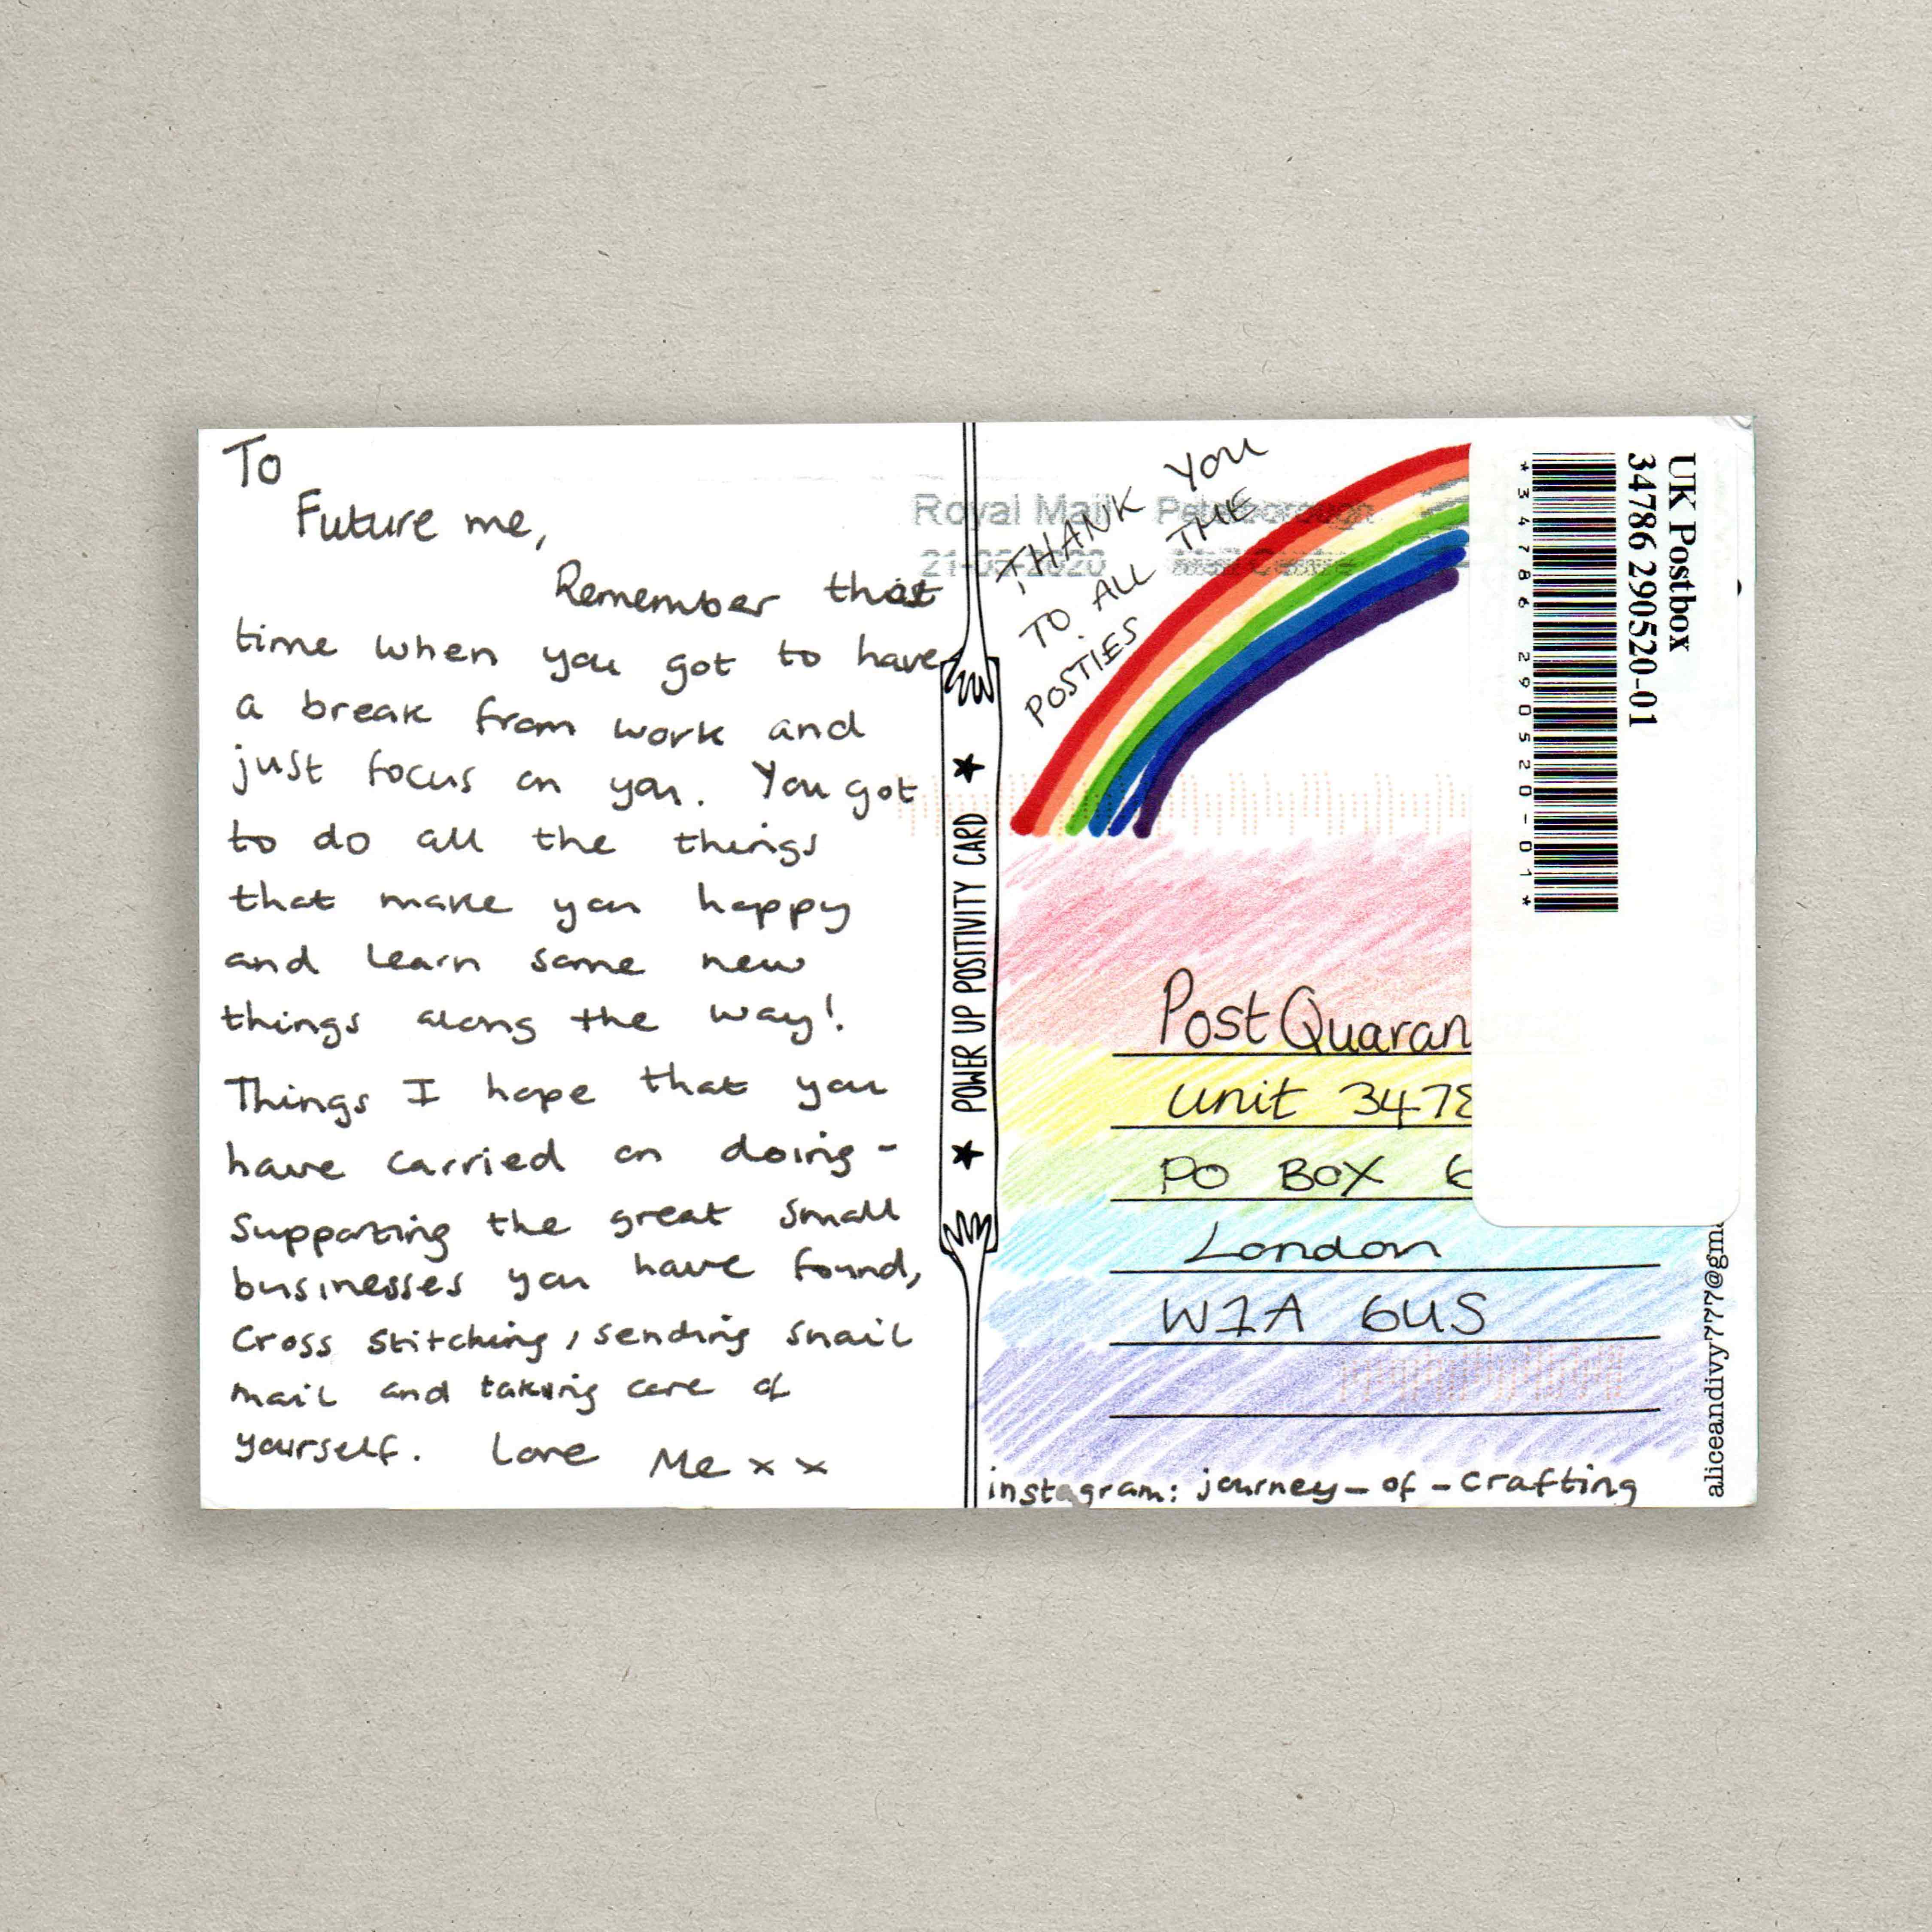 To
Future me,
Remember that
time when you got to have
a break from work and
just focus on you. You got
to do all the things
that make you happy
and learn some new
things along the way!
Things I hope that you
have carried on doing -
supporting the great small
businesses you have found,
cross stitching, sending snail
mail and taking care of
yourself. Love Me x x
★ POWER UP POSITIVITY CARD ★
Royal Mail Peterborough
21-05-2020 Mail Centre
THANK YOU
TO ALL THE
POSTIES
UK Postbox
34786 290520-01
*34786 290520-01*
Post Quaran
Unit 3478
PO BOX 6
London
W1A 6US
instagram: journey-of-crafting
aliceandivy777@gma